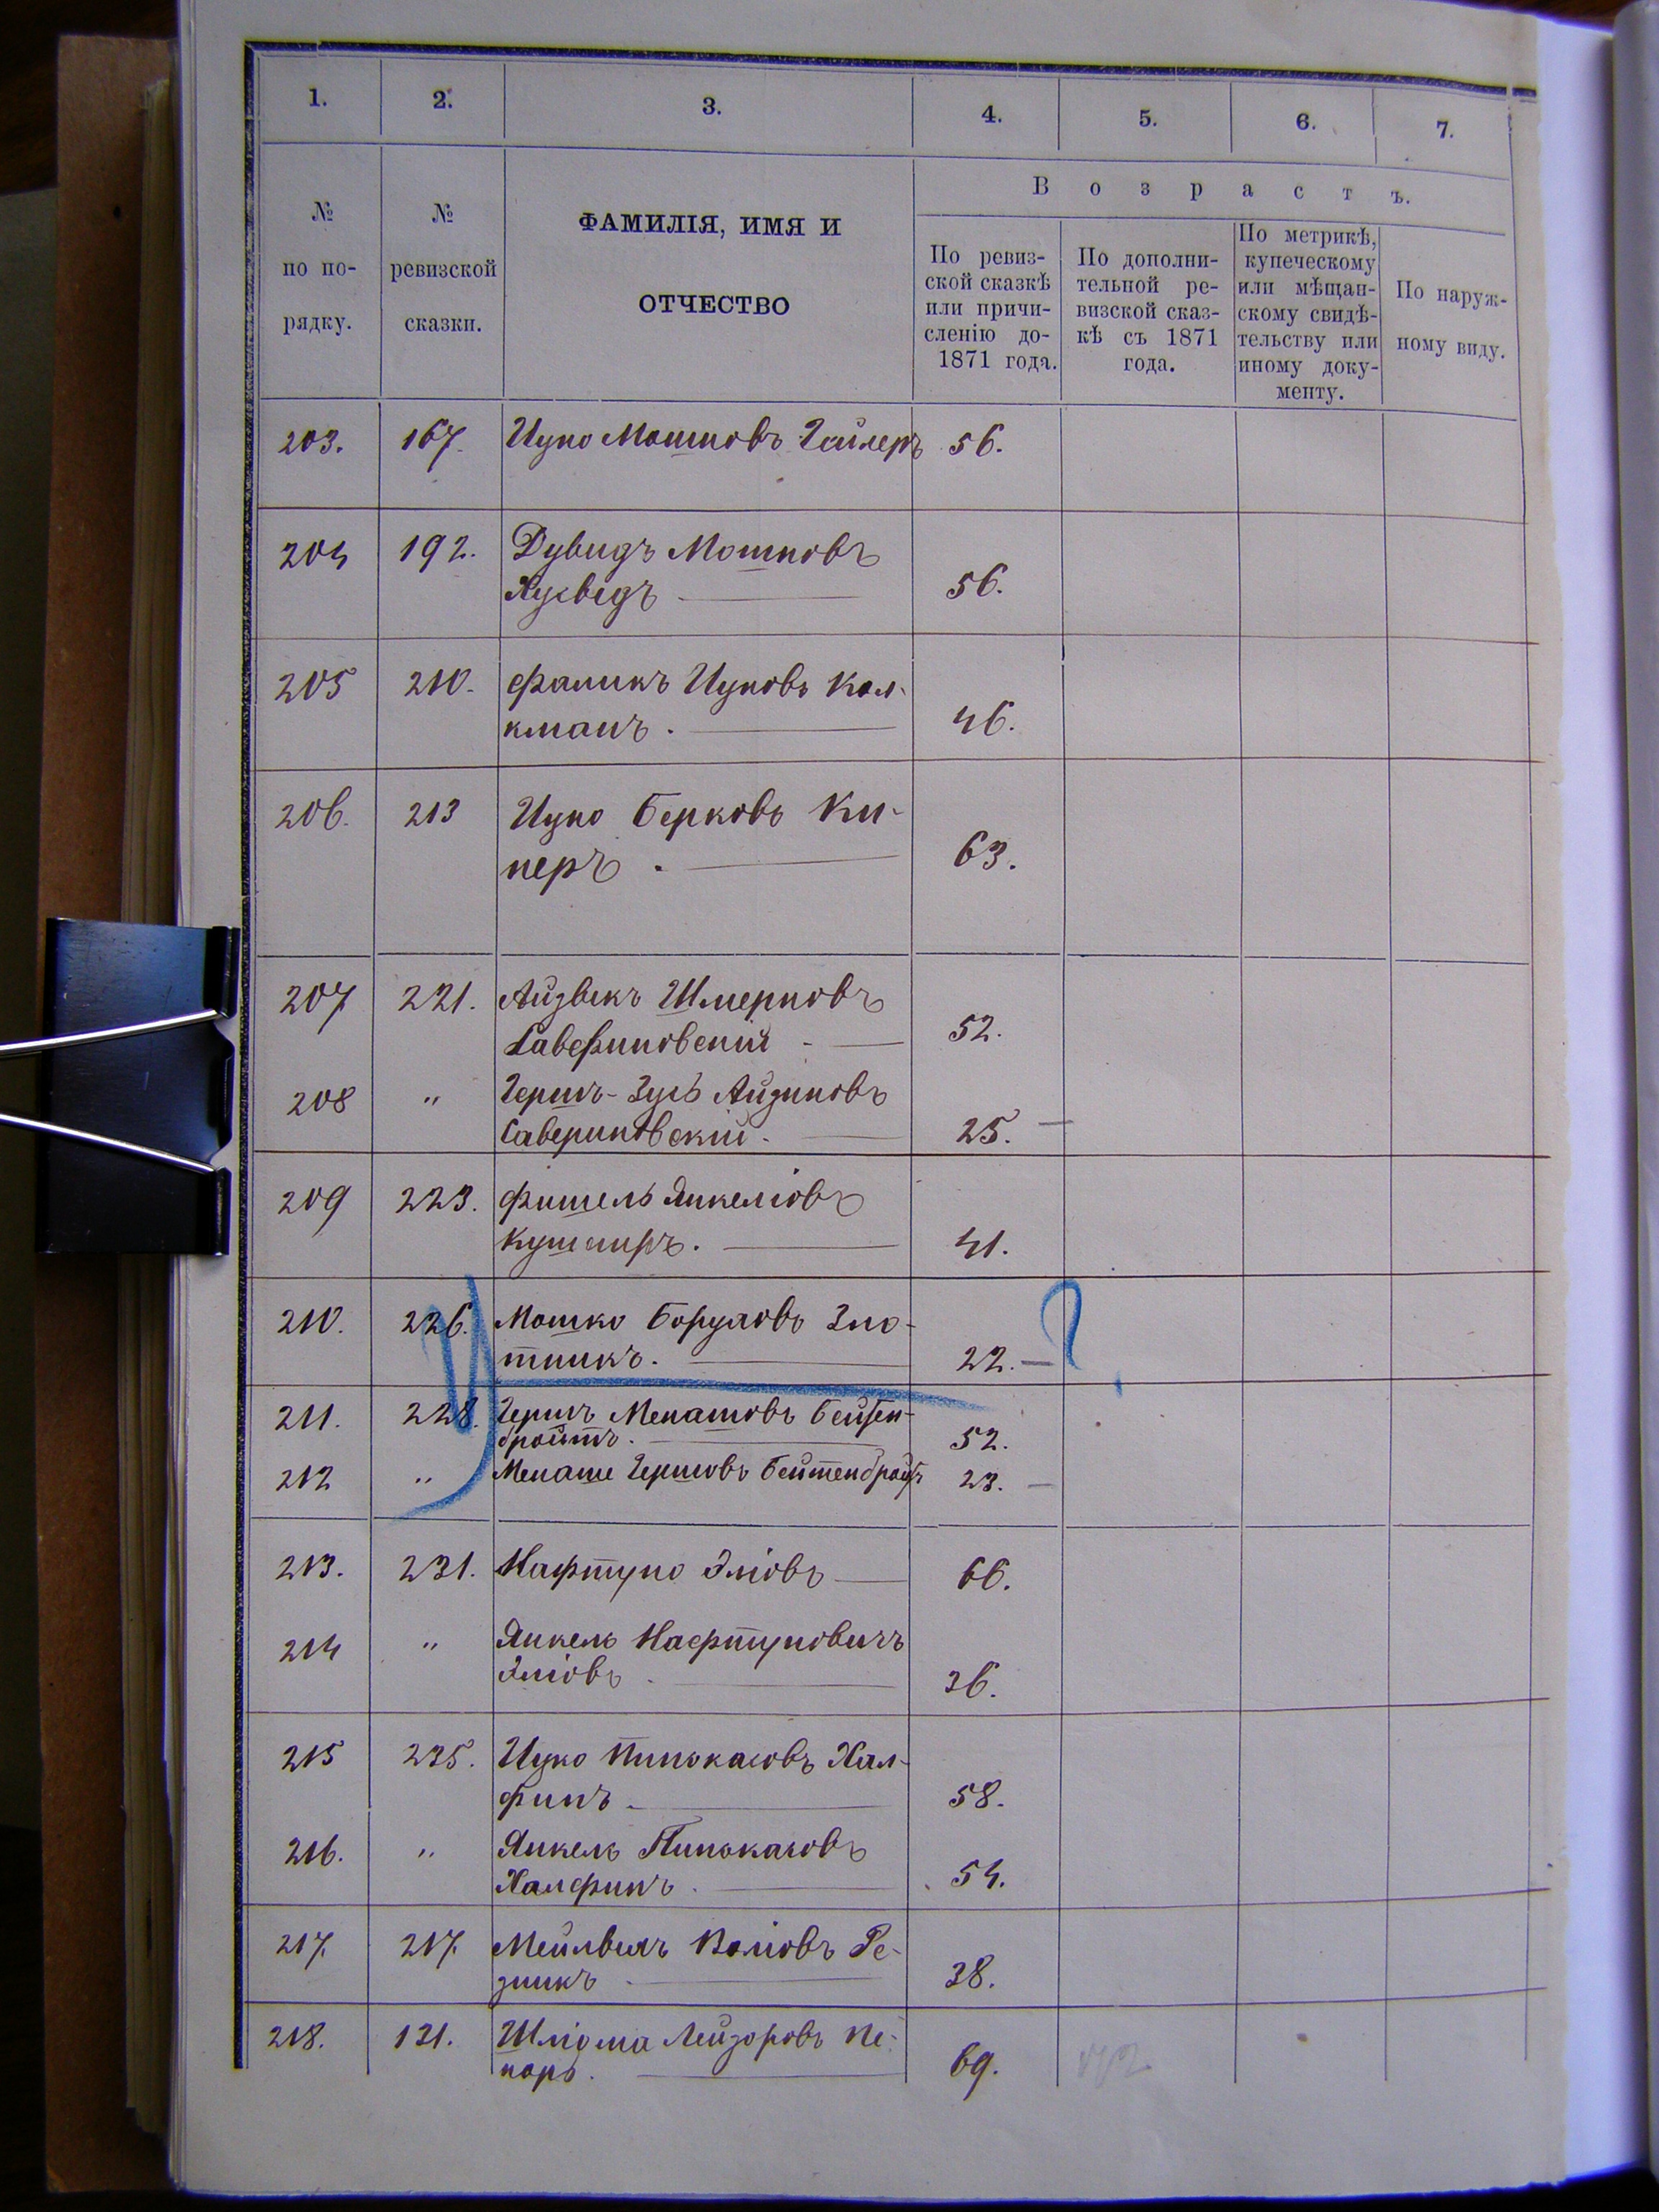 1. 2. 3. 4. 5. 6. 7.
№ по по-рядку.
№ ревизской сказки.
ФАМИЛІЯ, ИМЯ И
ОТЧЕСТВО
Возрастъ.
По ревиз-
ской сказкѣ
или причи-
сленію до-
1871 года.
По дополни-
тельной ре-
визской сказ-
кѣ съ 1871
года.
По метрикѣ,
купеческому
или мѣщан-
скому свидѣ-
тельству или
иному доку-
менту.
По наруж-
ному виду.
203. 167. Ицко Мошковъ Гайлеръ 56.
204 192. Дувидъ Мошковъ
56.
205 210. Фаликъ Ицковъ Кал-
кманъ. 46.
206. 213 Ицко Берковъ Ки-
перъ. 63.
207 221. Айзыкъ Шмерковъ
Савериновскій 52.
208 " Гершъ-Зусь Айзиковъ
Савериновскій. 25. —
209 223. Фишель Янкеліовъ
Кушниръ. 41.
210. 226. Мошко Боруховъ Зло-
тникъ. 22. — ?
211. 228. Гершъ Менашовъ Бейтен-
бройтъ. 52.
212 " Менаше Гершовъ Бейтенбройтъ 23. —
213. 231. Нафтуло Эліовъ 66.
214 " Янкель Нафтуловичъ
Эліовъ. 36.
215 235. Ицко Пинькасовъ Хал-
финъ 58.
216. " Янкель Пинькасовъ
Халфинъ. 54.
217. 217. Мейлвихъ Воліовъ Ре-
зникъ 38.
218. 131. Шліома Лейзоровъ Пе-
карь. 69.